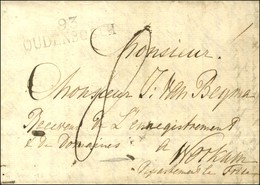 93
OUDENBOSCH
Monsieur
Monsieur J. Van Beyma
Receveur de L'enregistrement
& de Domaines à
Workum
Departement de Frise